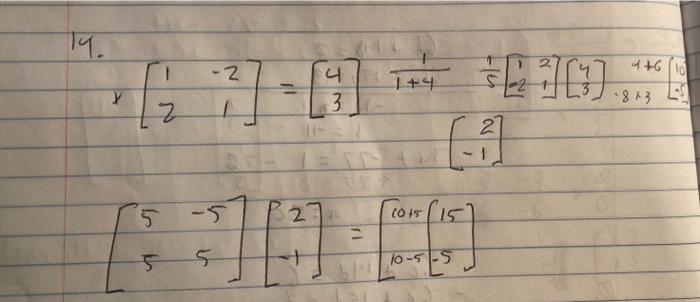 14.
x [1 -2; 2 1] = [4; 3] 1/(1+4) 1/5 [1 2; -2 1] [4; 3] 4+6 -8+3 [10; -5]
[2; -1]
[5 -5; 5 5] [2; -1] = [10+5; 10-5] [15; -5]